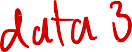 data 3